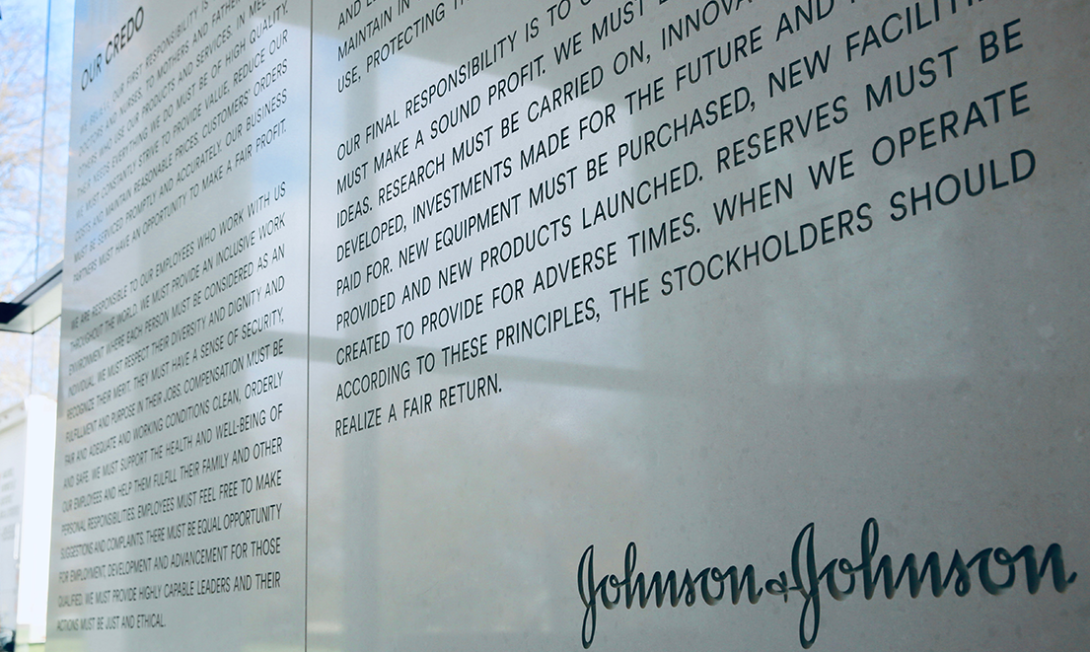 OUR CREDO
RESPONSIBILITY IS
NURSES, TO MOTHERS AND FATHE
WHO USE OUR PRODUCTS AND SERVICES. IN MEE
THEIR NEEDS EVERYTHING WE DO MUST BE OF HIGH QUALITY.
WE MUST CONSTANTLY STRIVE TO PROVIDE VALUE, REDUCE OUR
COSTS AND MAINTAIN REASONABLE PRICES. CUSTOMERS' ORDERS
MUST BE SERVICED PROMPTLY AND ACCURATELY. OUR BUSINESS
PARTNERS MUST HAVE AN OPPORTUNITY TO MAKE A FAIR PROFIT.
WE ARE RESPONSIBLE TO OUR EMPLOYEES WHO WORK WITH US
THROUGHOUT THE WORLD. WE MUST PROVIDE AN INCLUSIVE WORK
ENVIRONMENT WHERE EACH PERSON MUST BE CONSIDERED AS AN
INDIVIDUAL. WE MUST RESPECT THEIR DIVERSITY AND DIGNITY AND
RECOGNIZE THEIR MERIT. THEY MUST HAVE A SENSE OF SECURITY,
FULFILLMENT AND PURPOSE IN THEIR JOBS. COMPENSATION MUST BE
FAIR AND ADEQUATE AND WORKING CONDITIONS CLEAN, ORDERLY
AND SAFE. WE MUST SUPPORT THE HEALTH AND WELL-BEING OF
OUR EMPLOYEES AND HELP THEM FULFILL THEIR FAMILY AND OTHER
PERSONAL RESPONSIBILITIES. EMPLOYEES MUST FEEL FREE TO MAKE
SUGGESTIONS AND COMPLAINTS. THERE MUST BE EQUAL OPPORTUNITY
FOR EMPLOYMENT, DEVELOPMENT AND ADVANCEMENT FOR THOSE
QUALIFIED. WE MUST PROVIDE HIGHLY CAPABLE LEADERS AND THEIR
ACTIONS MUST BE JUST AND ETHICAL.
AND
MAINTAIN IN
USE, PROTECTING
OUR FINAL RESPONSIBILITY IS TO
MUST MAKE A SOUND PROFIT. WE MUST
IDEAS. RESEARCH MUST BE CARRIED ON, INNOVA
DEVELOPED, INVESTMENTS MADE FOR THE FUTURE AND
PAID FOR. NEW EQUIPMENT MUST BE PURCHASED, NEW FACILITI
PROVIDED AND NEW PRODUCTS LAUNCHED. RESERVES MUST BE
CREATED TO PROVIDE FOR ADVERSE TIMES. WHEN WE OPERATE
ACCORDING TO THESE PRINCIPLES, THE STOCKHOLDERS SHOULD
REALIZE A FAIR RETURN.
Johnson & Johnson